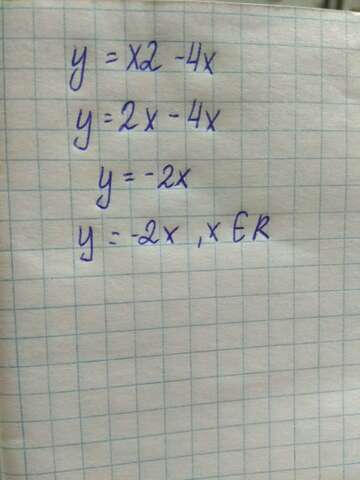 y = x2 - 4x
y = 2x - 4x
y = -2x
y = -2x , x ∈ R